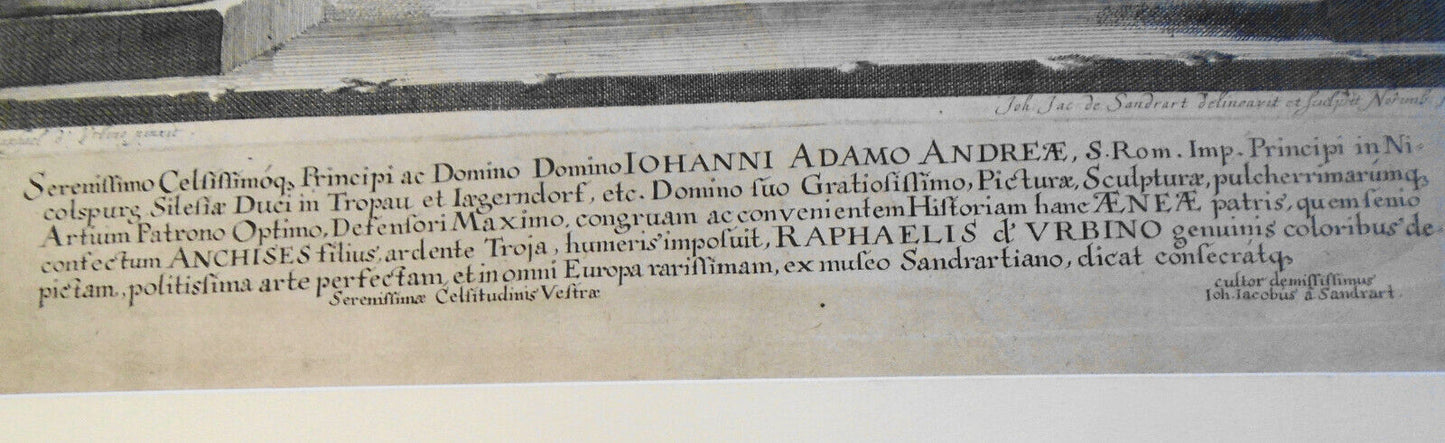 Joh. Jac de Sandrart delineavit et sculpsit Norimb.
d' Vrbino pinxit.
Sereniſſimo Celſiſſimóq, Principi ac Domino Domino IOHANNI ADAMO ANDREÆ, S. Rom. Imp. Principi in Ni-
colspurg Sileſiæ Duci in Tropau et Iægerndorf, etc. Domino ſuo Gratioſiſſimo, Picturæ, Sculpturæ, pulcherrimarúmq,
Artium Patrono Optimo, Defenſori Maximo, congruam ac convenientem Hiſtoriam hanc ÆNEÆ patris, quem ſenio
confectum ANCHISES filius, ardente Troja, humeris impoſuit, RAPHAELIS d' VRBINO genuinis coloribus de-
pictam, politisſima arte perfectam, et in omni Europa rariſſimam, ex muſeo Sandrartiano, dicat conſecrátq,
Sereniſſimæ Celſitudinis Veſtræ
cultor demiſſiſſimus
Ioh. Iacobus â Sandrart.